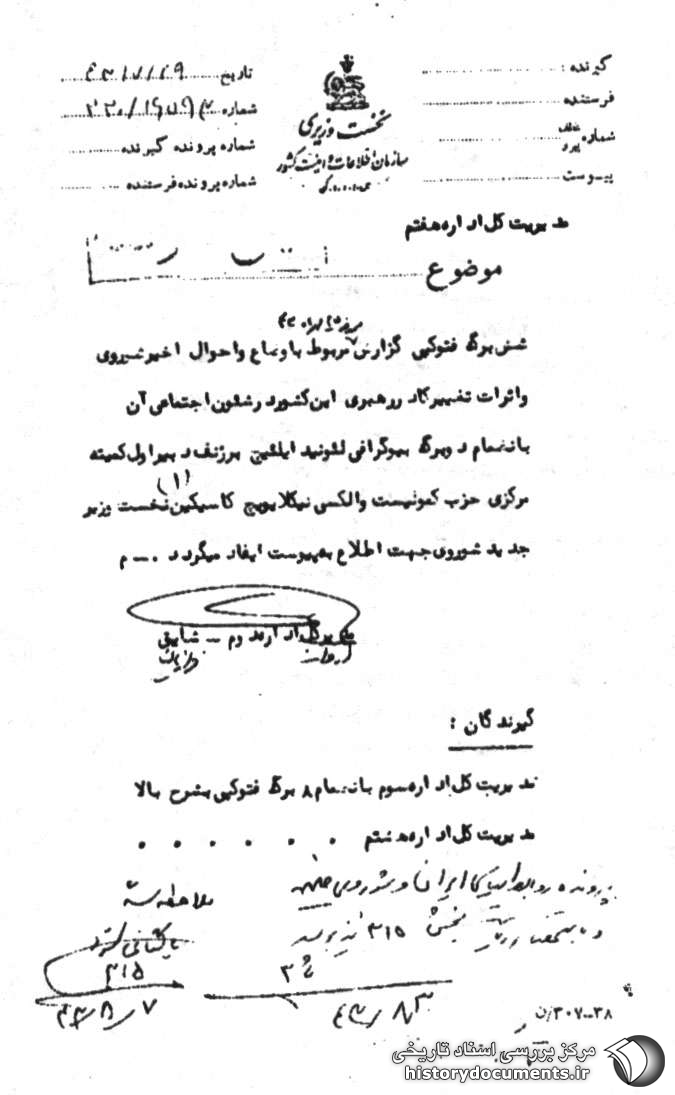 گیرنده :
فرستنده
شماره
پیوست
نخست وزیری
سازمان اطلاعات و امنیت کشور
تاریخ ۴۳/۷/۲۹
شماره
شماره پرونده گیرنده
شماره پرونده فرستنده
مدیریت کل اداره هفتم
موضوع
شش برگ فتوکپی گزارش مربوط باوضاع واحوال اخیر شوروی
واثرات تغییر کادر رهبری این کشور در شئون اجتماعی آن
بانضمام دو برگ بیوگرافی لئونید ایلئیچ برژنف دبیر اول کمیته
مرکزی حزب کمونیست والکسی نیکلایویچ کاسیگین نخست وزیر (۱)
جدید شوروی جهت اطلاع بپیوست ایفاد میگردد . ــ م
مدیر کل اداره دوم ــ شایق
گیرندگان :
مدیریت کل اداره سوم بانضمام ۸ برگ فتوکپی بشرح بالا
مدیریت کل اداره هشتم . . . . . .
پرونده روابط سیاسی ایران و شوروی
بخش ۳۱۵
ملاحظه شد
بایگانی شود
۳۱۵
۴۳/۸/۳
۴۳/۸/۷
۳۰۷-۳۸/ن
مرکز بررسی اسناد تاریخی
historydocuments.ir